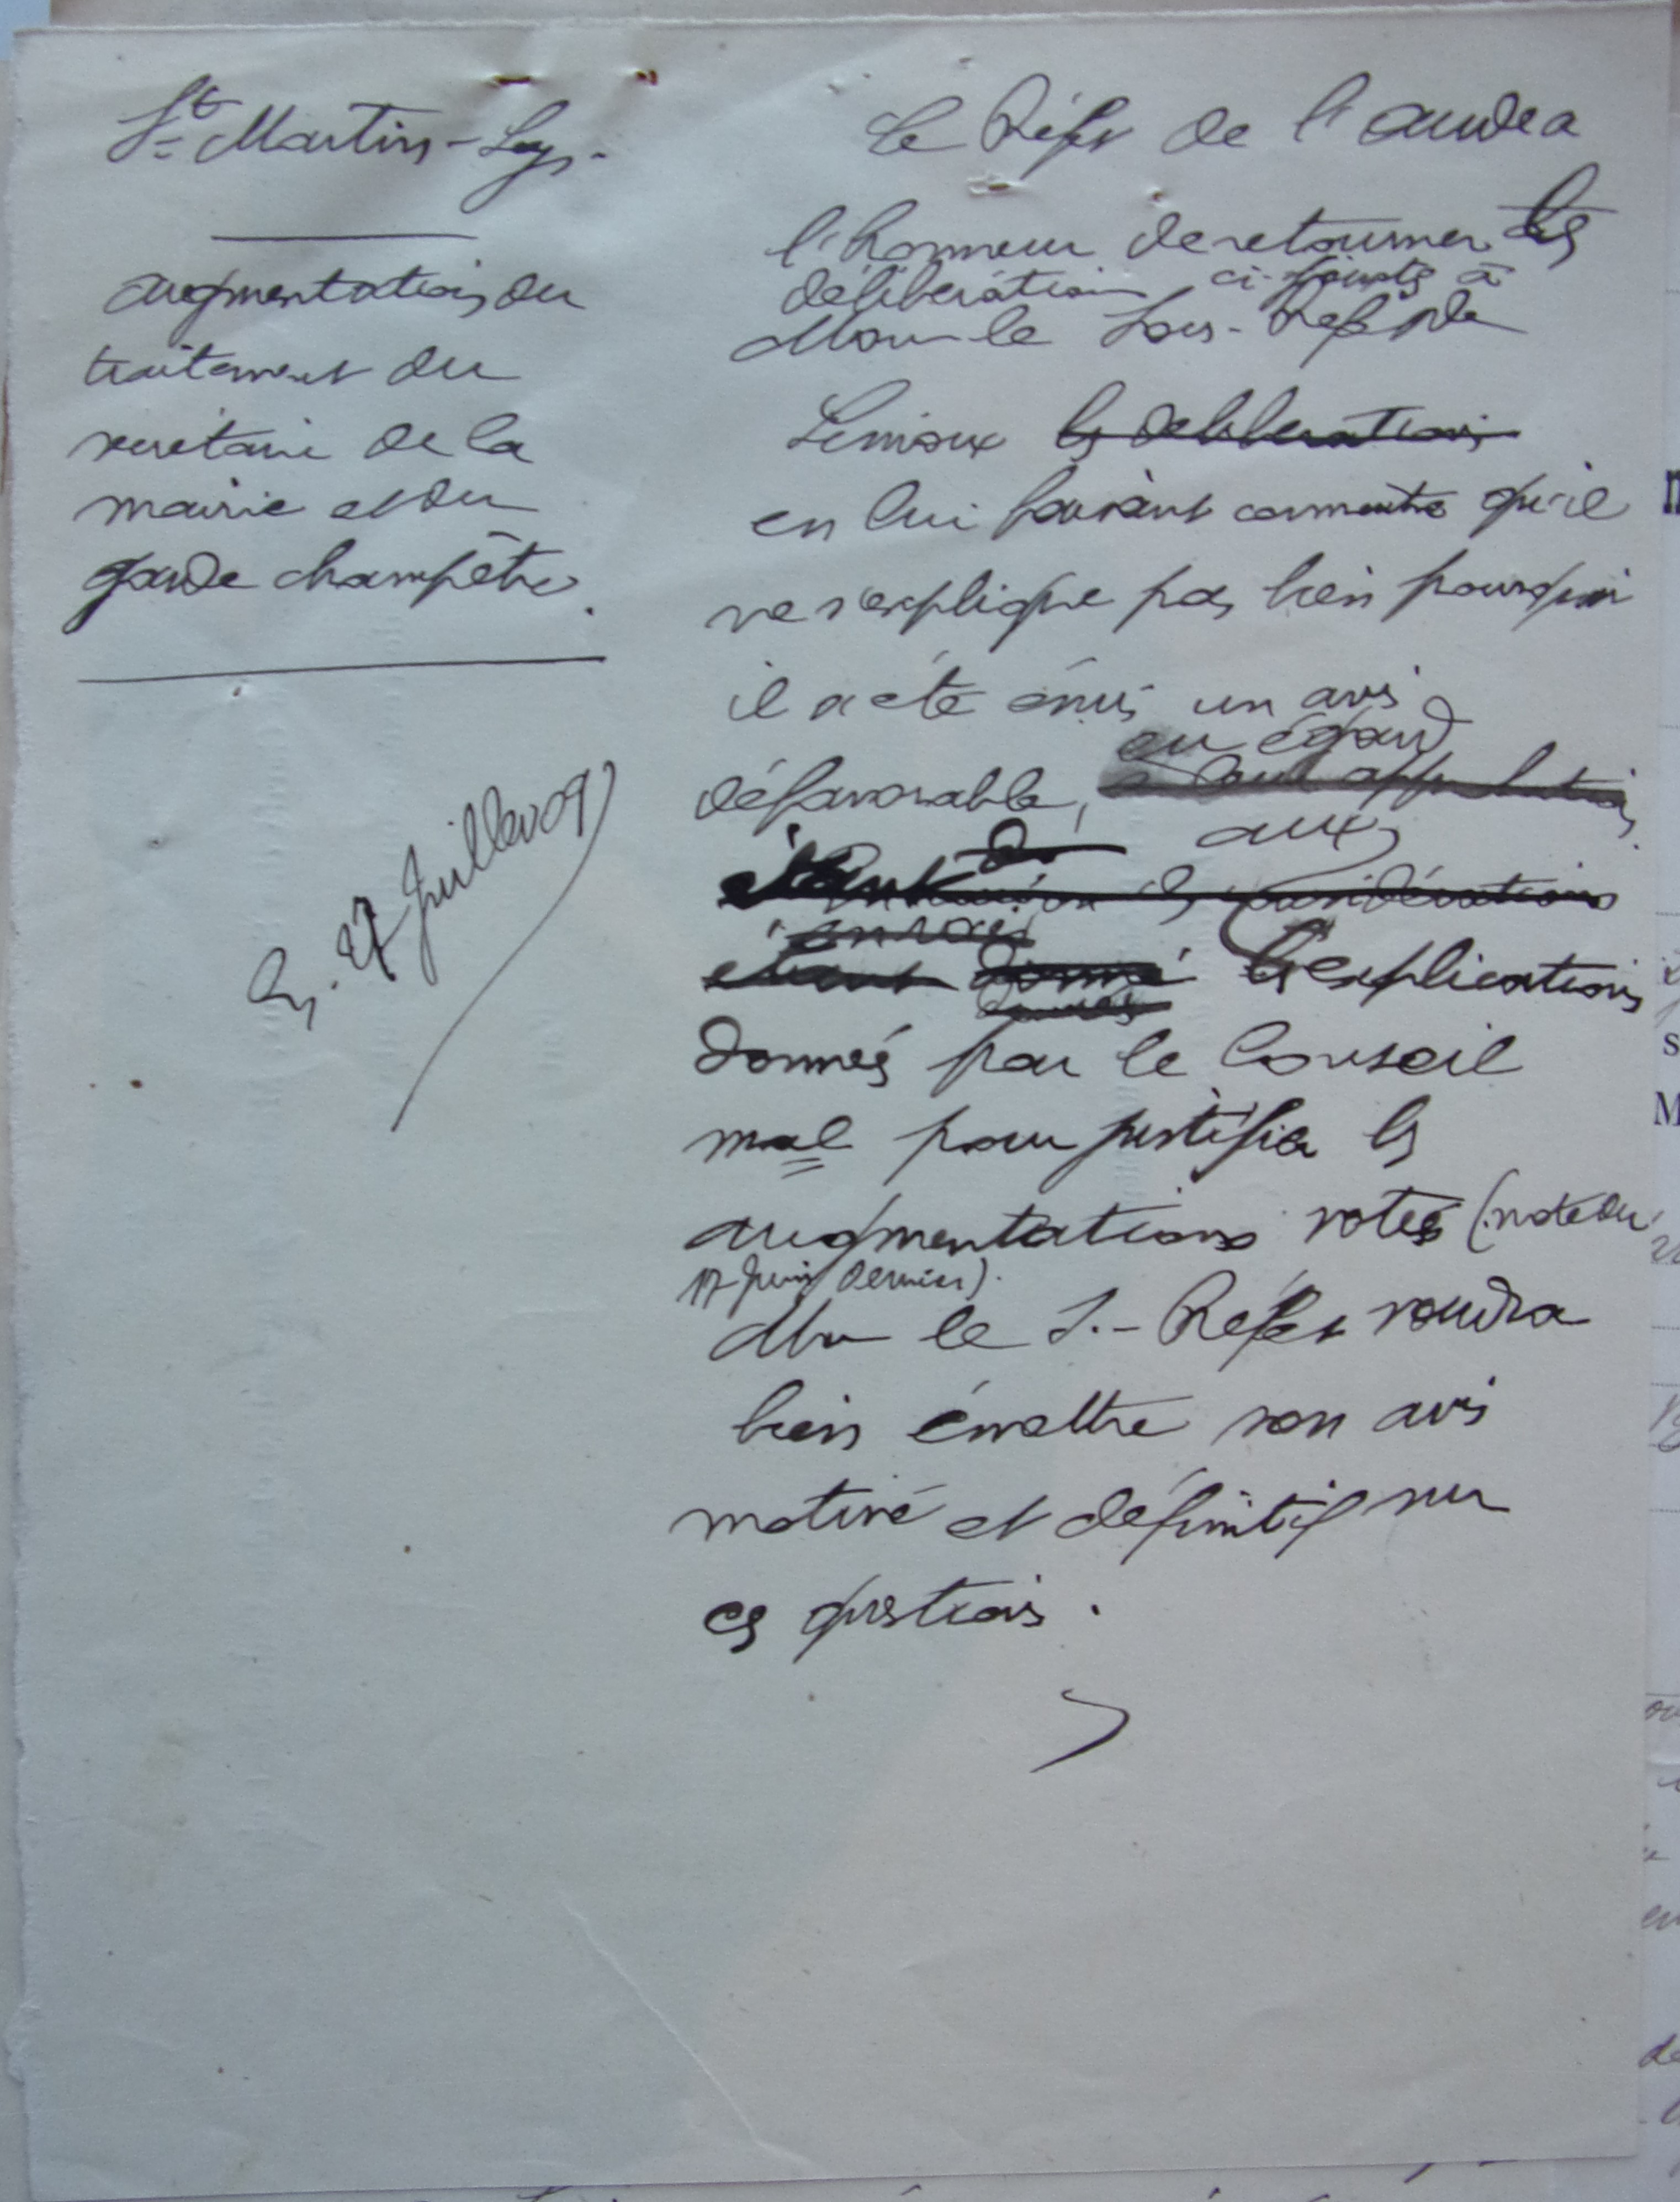 St Martin-Lys.
augmentation du
traitement du
secrétaire de la
mairie et du
garde champêtre.
27 Juillet 09
Le Préfet de l'Aude a
l'honneur de retourner les
délibérations ci-joints à
Monr le Sous-Préfet de
Limoux les délibérations
en lui faisant connaitre qu'il
ne s'explique pas bien pourquoi
il a été émis un avis
eu égard
défavorable,
aux
explications
donnés par le Conseil
mal pour justifier les
augmentations votés (note du
17 Juin dernier).
Mr le S.-Préfet voudra
bien émettre son avis
motivé et définitif sur
ces questions.